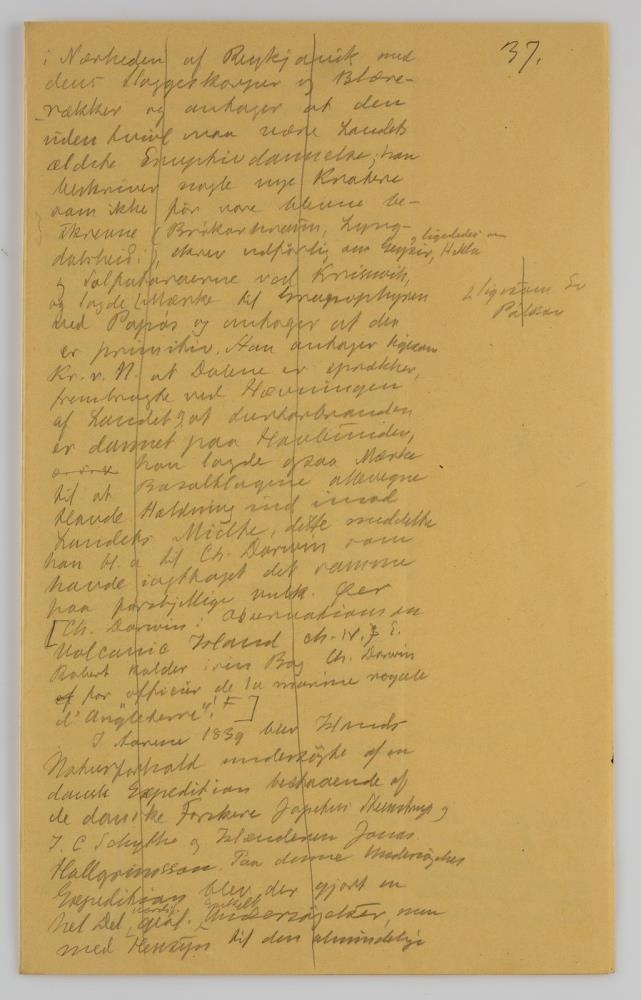 37.
i Nærheden af Reykjavik med
dens Slaggeskorper og Blære-
rækker og antager at den
uden tvivl maa være Landets
ældste Eruptivdannelse; han
beskriver nogle nye Kratere
som ikke før vare blevne be-
skrevne (
dalsheidi), skrev udførlig om Geysir, Hekla
ligeledes om
og Solfatarerne ved Krisuvik,
og lagde Mærke til Granophyren
ligesom
ved Papós og antager at den
er primitiv. Han antager ligesom
Kr. v. N. at Dalene er sprækker,
frembragte ved Hævningen
af Landet og at Surtarbranden
er dannet paa Havbunden,
han lagde ogsaa Mærke
til at Basaltlagene allevegne
havde Hældning ind imod
Landets Midte, dette meddelte
han til Ch. Darwin som
havde iagttaget det samme
paa forskjellige vulk. Øer
[Ch. Darwin: Observations on
Volcanic Island ch. IV.
Robert kalder i sin Bog Ch. Darwin
for officier de la marine royale
d'Angleterre"! ]
I Aarene 1839 blev Islands
Naturforhold undersøgte af en
dansk Expedition bestaaende af
de danske Forskere Japetus Steenstrup og
J. C. Schythe og Islænderen Jonas
Hallgrimsson. Paa denne Undersøgelses
Expedition blev der gjort en
hel Del geol. Undersøgelser, men
med Hensyn til den almindelige